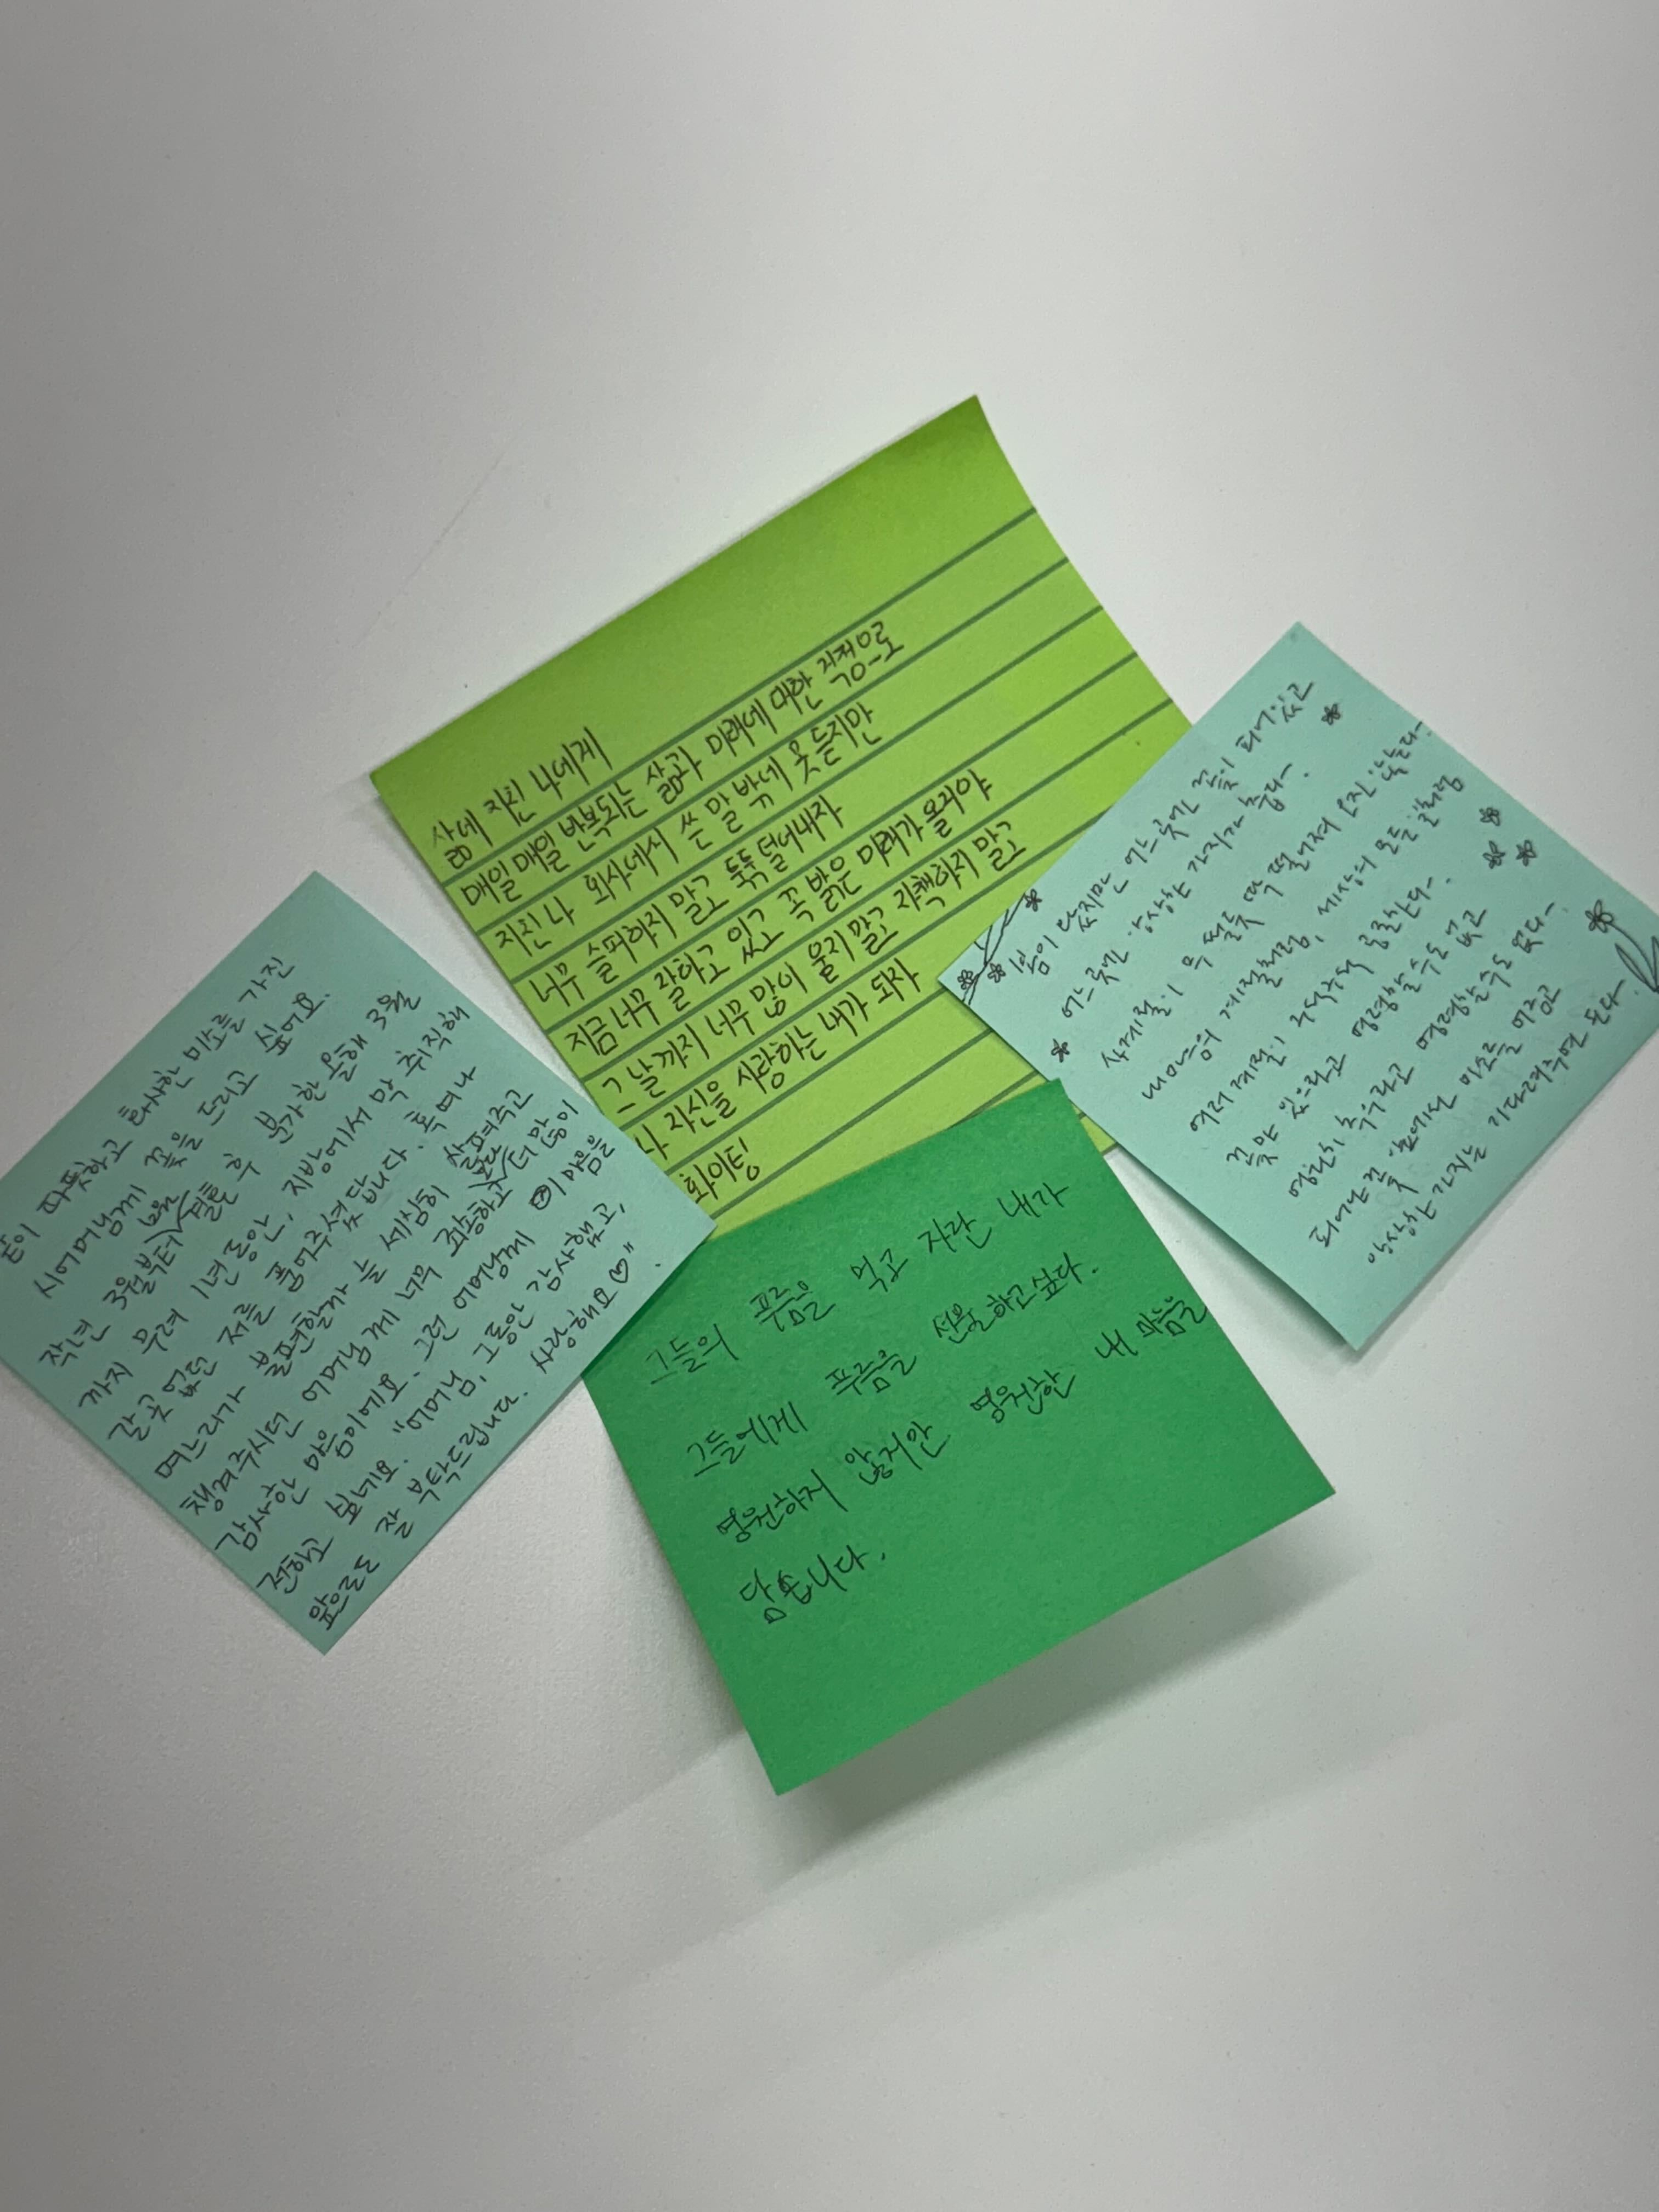 삶에 지친 나에게
매일 매일 반복되는 삶과 미래에 대한 걱정으로
지친 나 회사에서 쓴 말 밖에 못 듣지만
너무 슬퍼하지 말고 툭툭 털어내자
지금 너무 잘하고 있고 꼭 밝은 미래가 올거야
그 날까지 너무 많이 울지 말고 자책하지 말고
나 자신을 사랑하는 내가 되자
화이팅
봄이 왔지만 어느 곳에는 꽃이 피어있고
어느 곳에는 앙상한 가지가 춥다.
사계절이 무 썰듯 딱 떨어져 오진 않는다.
마음의 계절처럼, 세상의 모든 일처럼
여러 계절이 누덕누덕 공존한다.
꽃만 있으라고 명령할 수는 없고
영원히 추우라고 명령할 수도 없다.
피어난 꽃 앞에선 미소를 머금고
앙상한 가지는 기다려주면 된다.
봄이 따뜻하고 화사한 미소를 가진
시어머님께 꽃을 드리고 싶어요.
작년 3월부터 분가한 올해 3월
까지 무려 1년 동안, 지방에서 막 취직해
갈 곳 없던 저를 품어주셨답니다. 혹여나
며느리가 불편할까 늘 세심히 살펴주고
챙겨주시던 어머님께 너무 죄송하고 더 많이
감사한 마음이에요. 그런 어머님께 이 마음을
전하고 보내요. "어머님, 그동안 감사했고,
앞으로도 잘 부탁드립니다. 사랑해요♡".
그들의 푸름을 먹고 자란 내가
그들에게 푸름을 선물하고 싶다.
영원하지 않지만 영원한 내 마음을
담습니다.